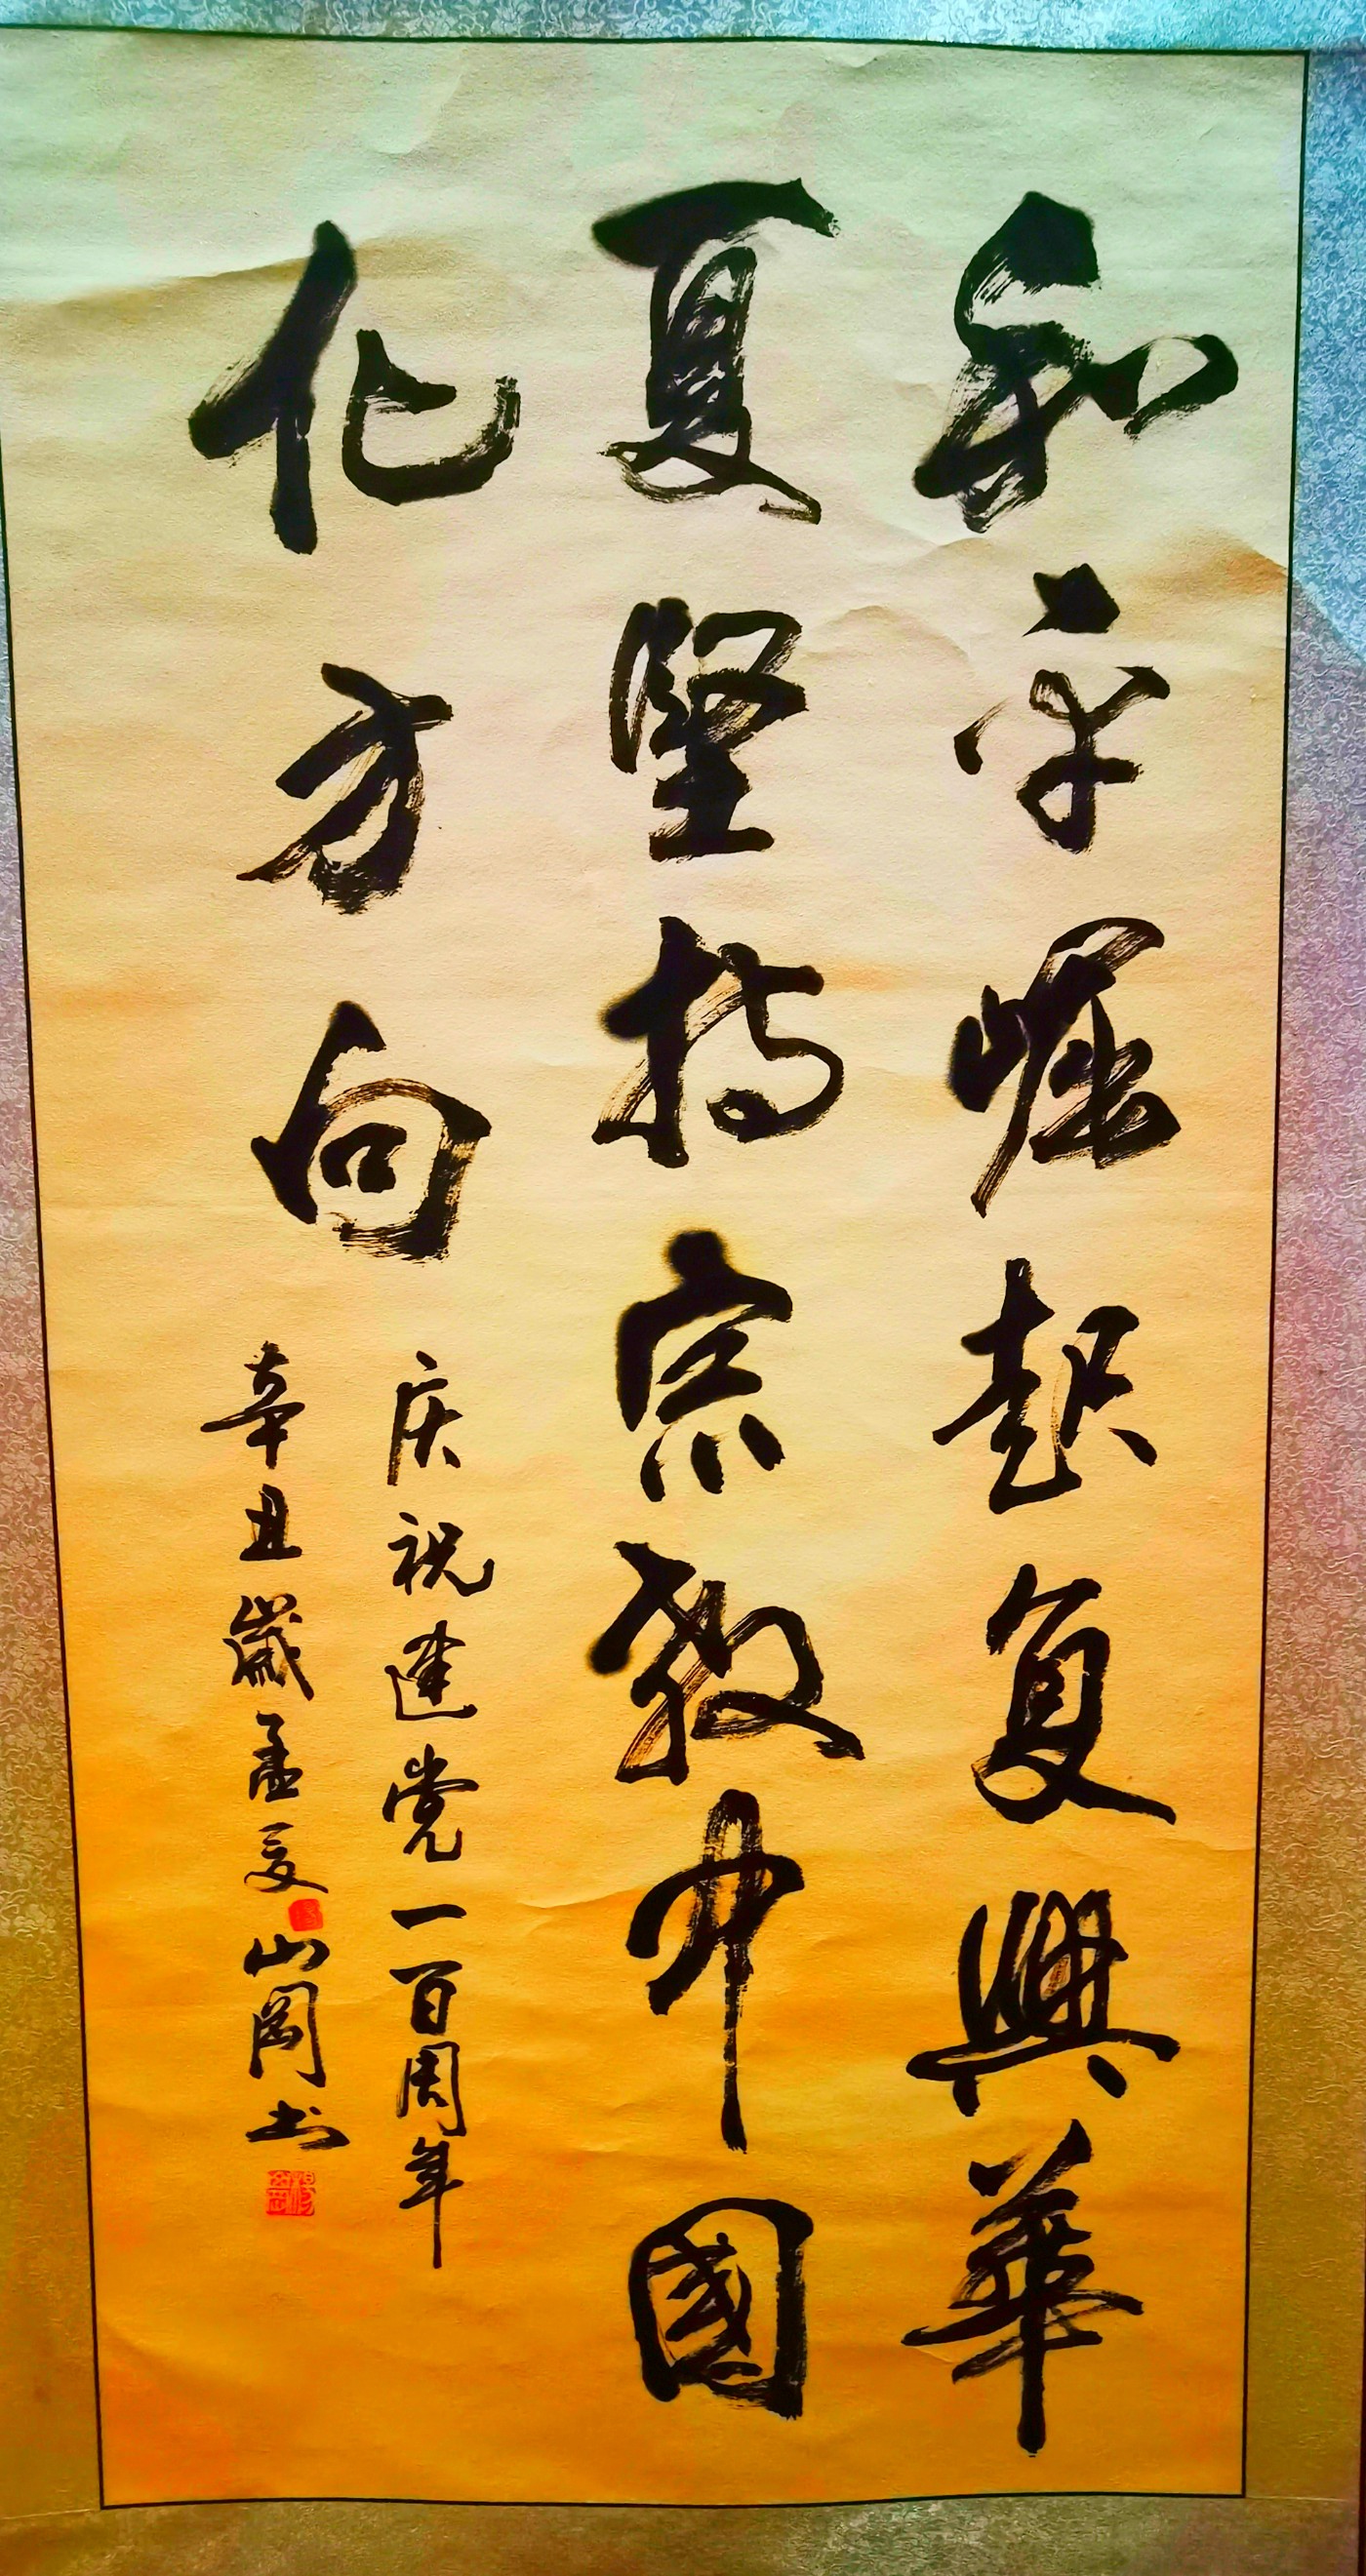 和平崛起复興華
夏堅持宗教中國
化方向
庆祝建党一百周年
辛丑歲孟夏山岡书